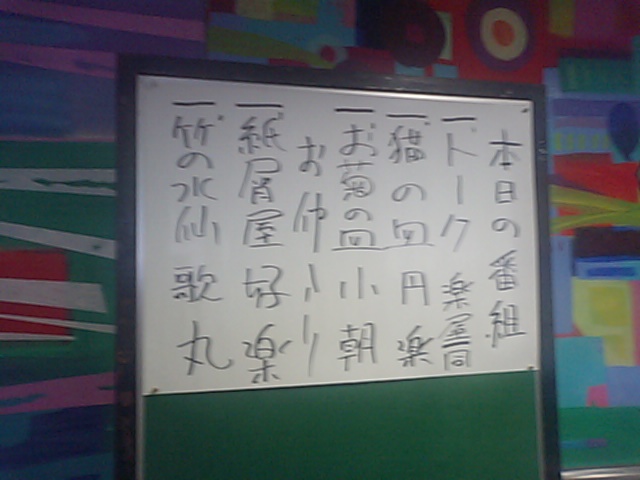 本日の番組
一、トーク 楽屋一同
一、猫の皿 円楽
一、お菊の皿 小朝
お仲入り
一、紙屑屋 好楽
一、竹の水仙 歌丸